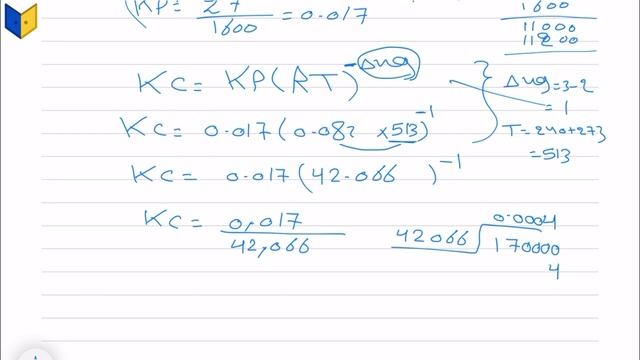 KP = 27/1600 = 0.017
1600
11000
11200
KC = KP(RT)^-Δng
Δng = 3-2
= 1
T = 240+273
= 513
KC = 0.017(0.082 × 513)^-1
KC = 0.017(42.066)^-1
KC = 0.017/42.066
0.0004
42066 170000
4